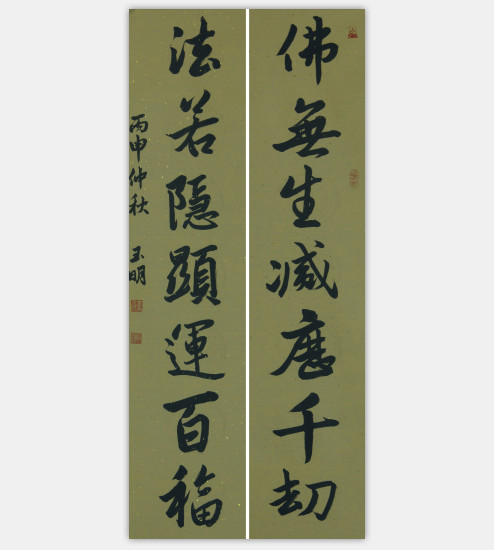 佛無生滅歷千劫
法若隱顯運百福
丙申仲秋 玉明